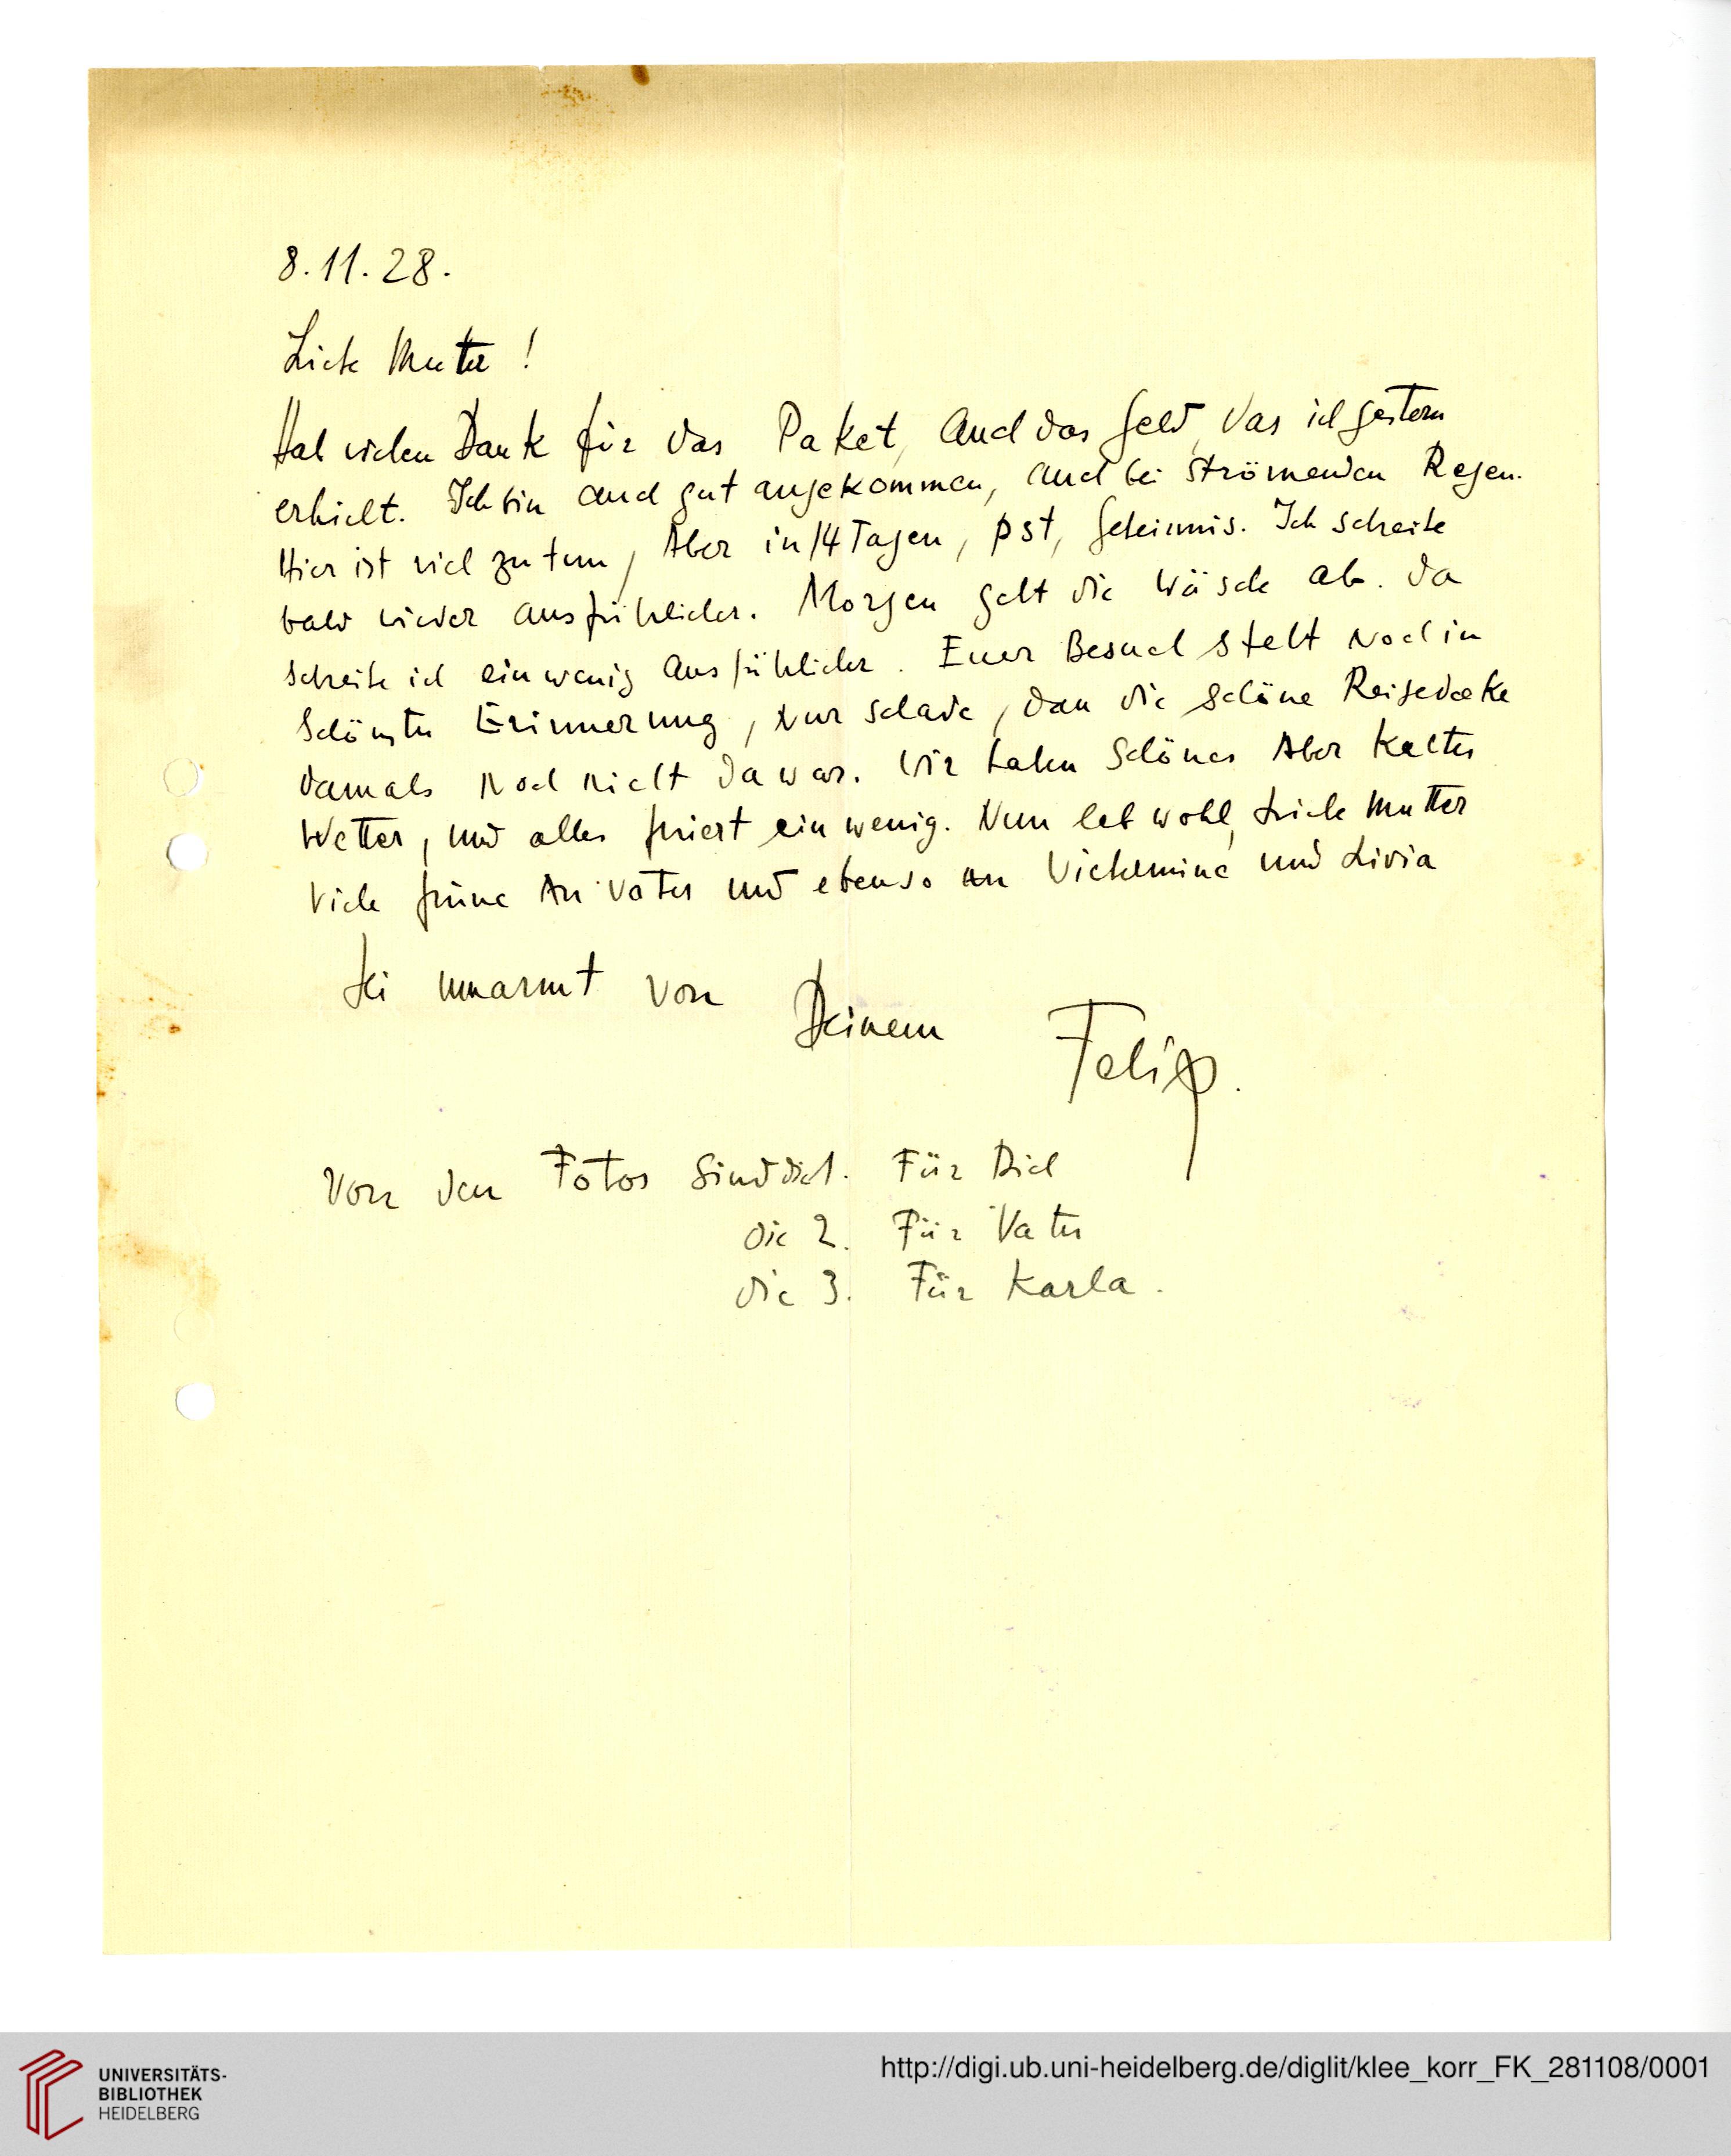 8.11.28.
Liebe Mutter!
Hab vielen Dank für das Paket, auch das Geld, das ich gestern
erhielt. Ich bin auch gut angekommen, auch bei strömenden Regen.
Hier ist viel zu tun, Aber in 14 Tagen, pst, Geheimnis. Ich schreibe
bald wieder ausführlicher. Morgen geht die Wäsche ab. Da
schreibe ich ein wenig ausführlicher. Euer Besuch steht noch in
schönster Erinnerung, nur schade, dass die schöne Reisedecke
damals noch nicht da war. Wir haben schönes Aber kaltes
Wetter, und alles friert ein wenig. Nun leb wohl, Liebe Mutter
Viele Grüsse An Vater und ebenso an und Livia
Sei umarmt von Deinem Felix.
Von den Fotos sind die 1. Für Dich
die 2. Für Vater
die 3. Für Karla.
UNIVERSITÄTS-
BIBLIOTHEK
HEIDELBERG
http://digi.ub.uni-heidelberg.de/diglit/klee_korr_FK_281108/0001